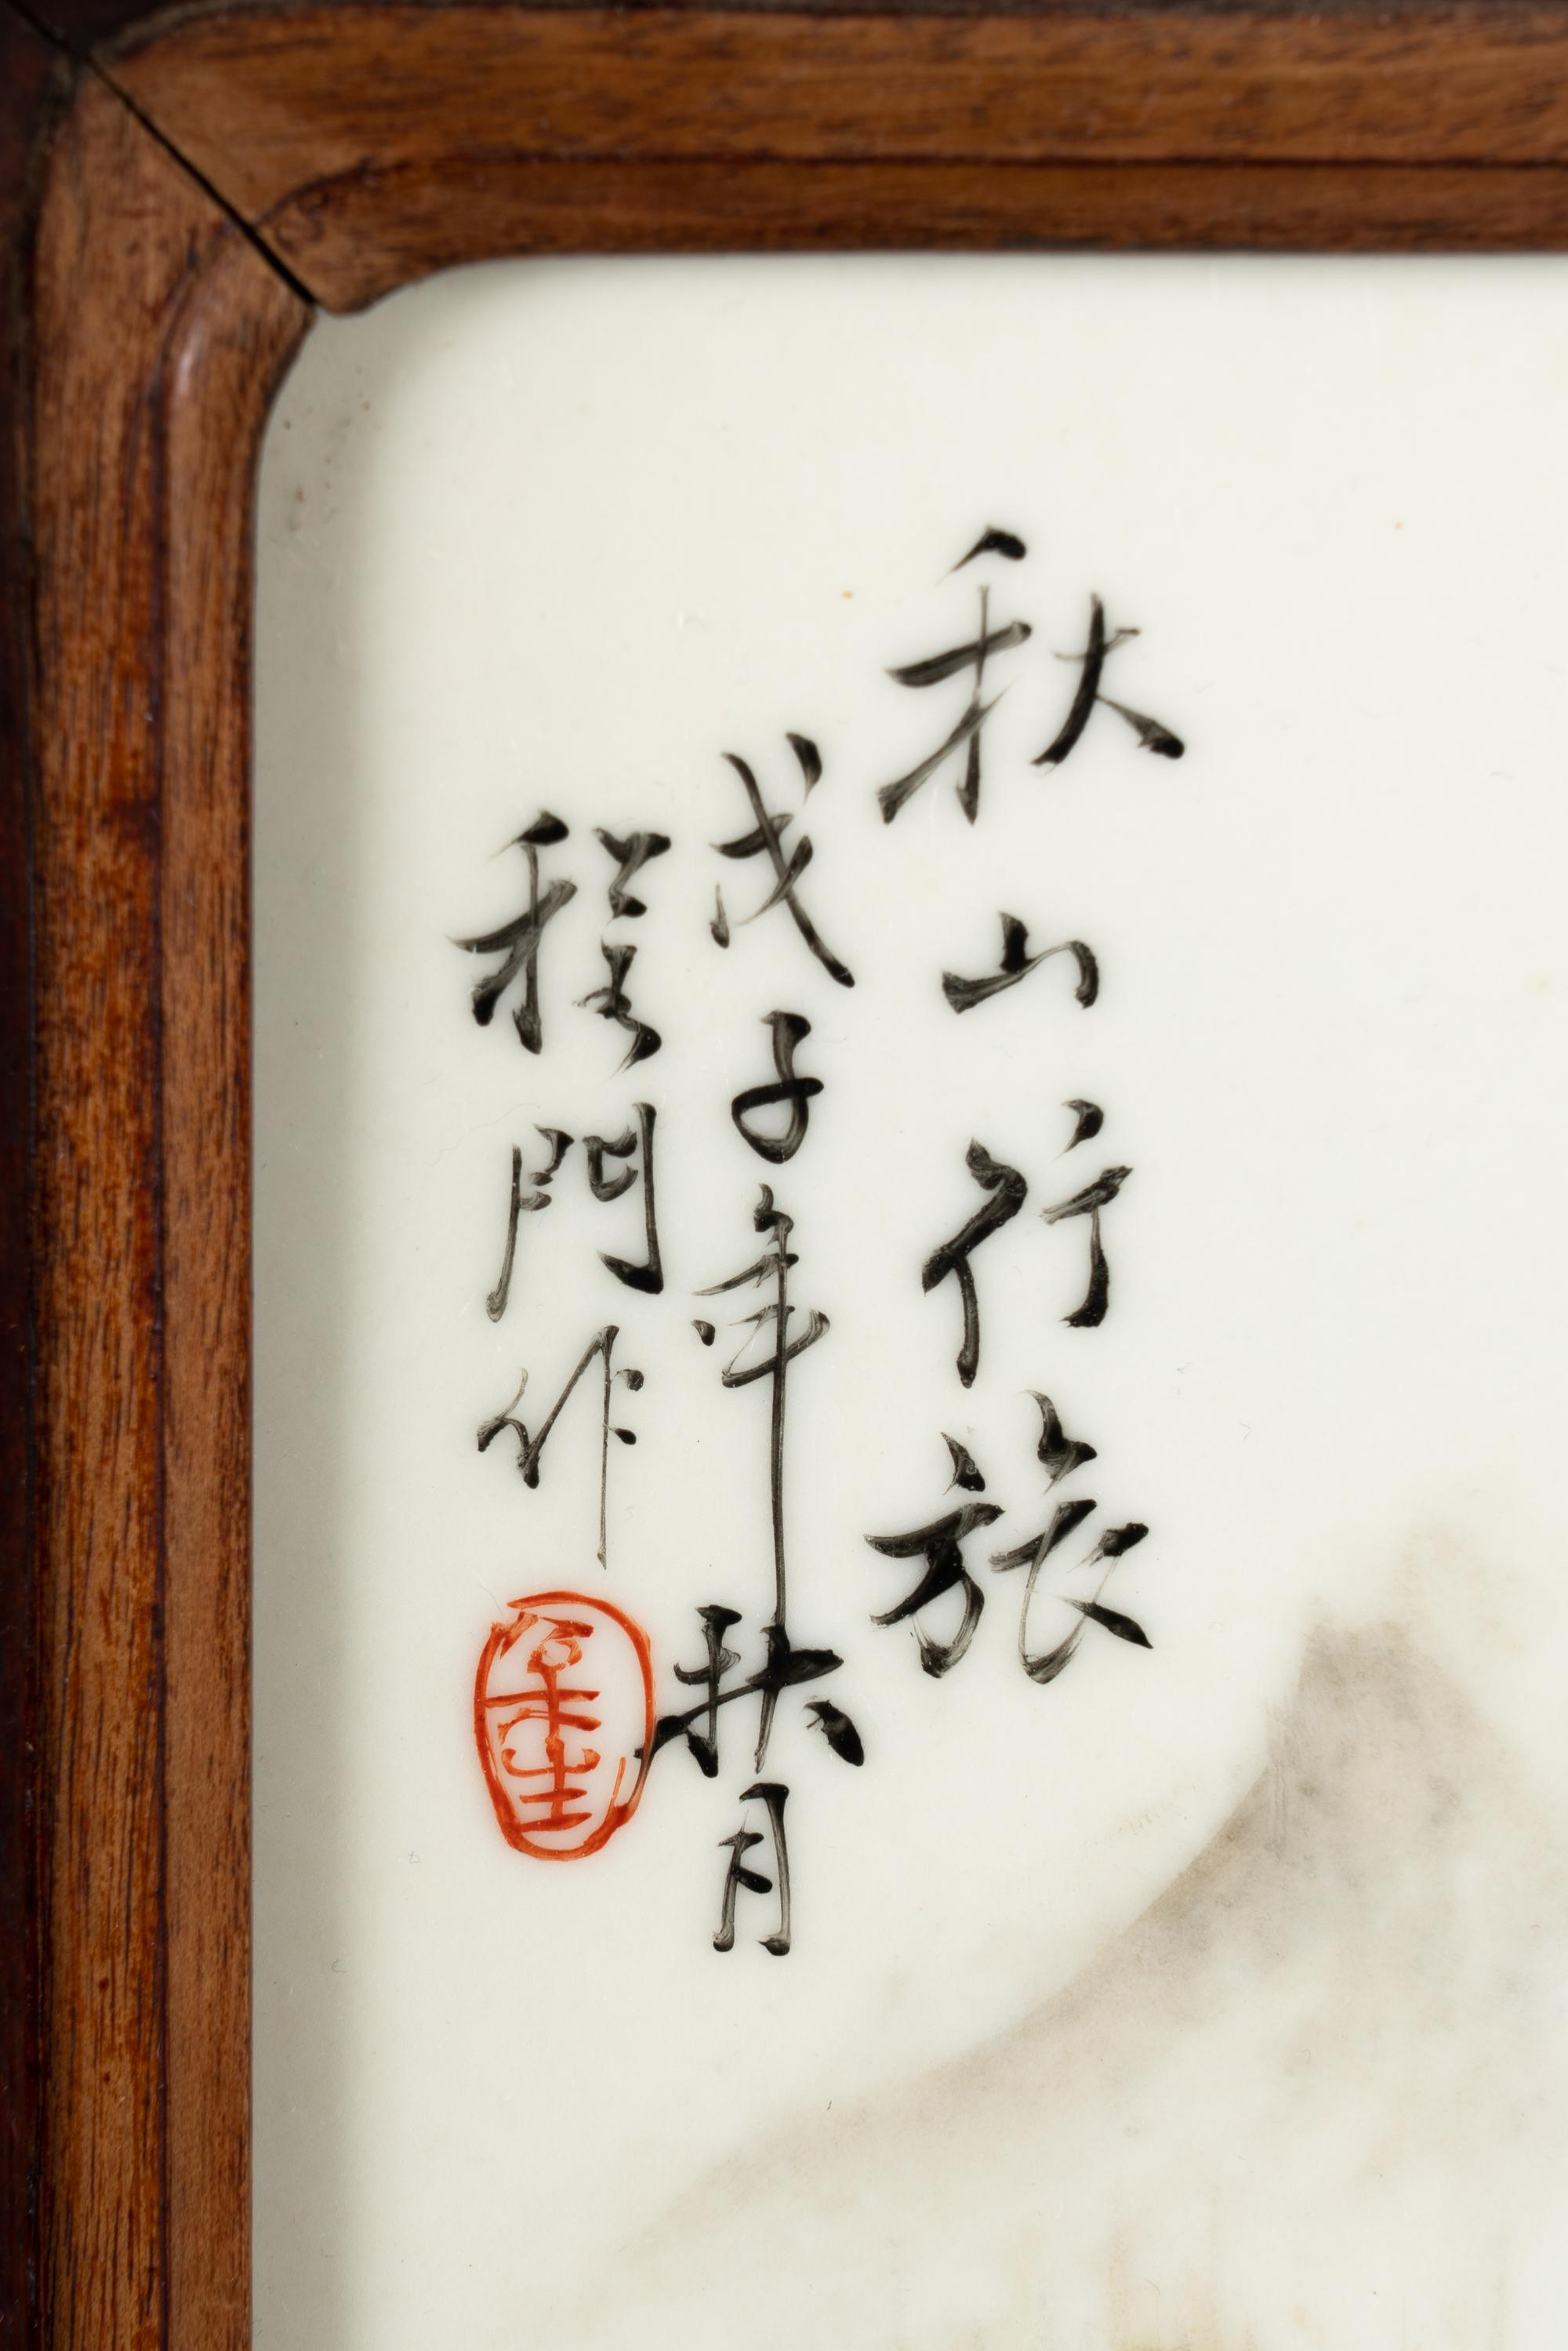 秋山行旅
戊子年秋月
程門作